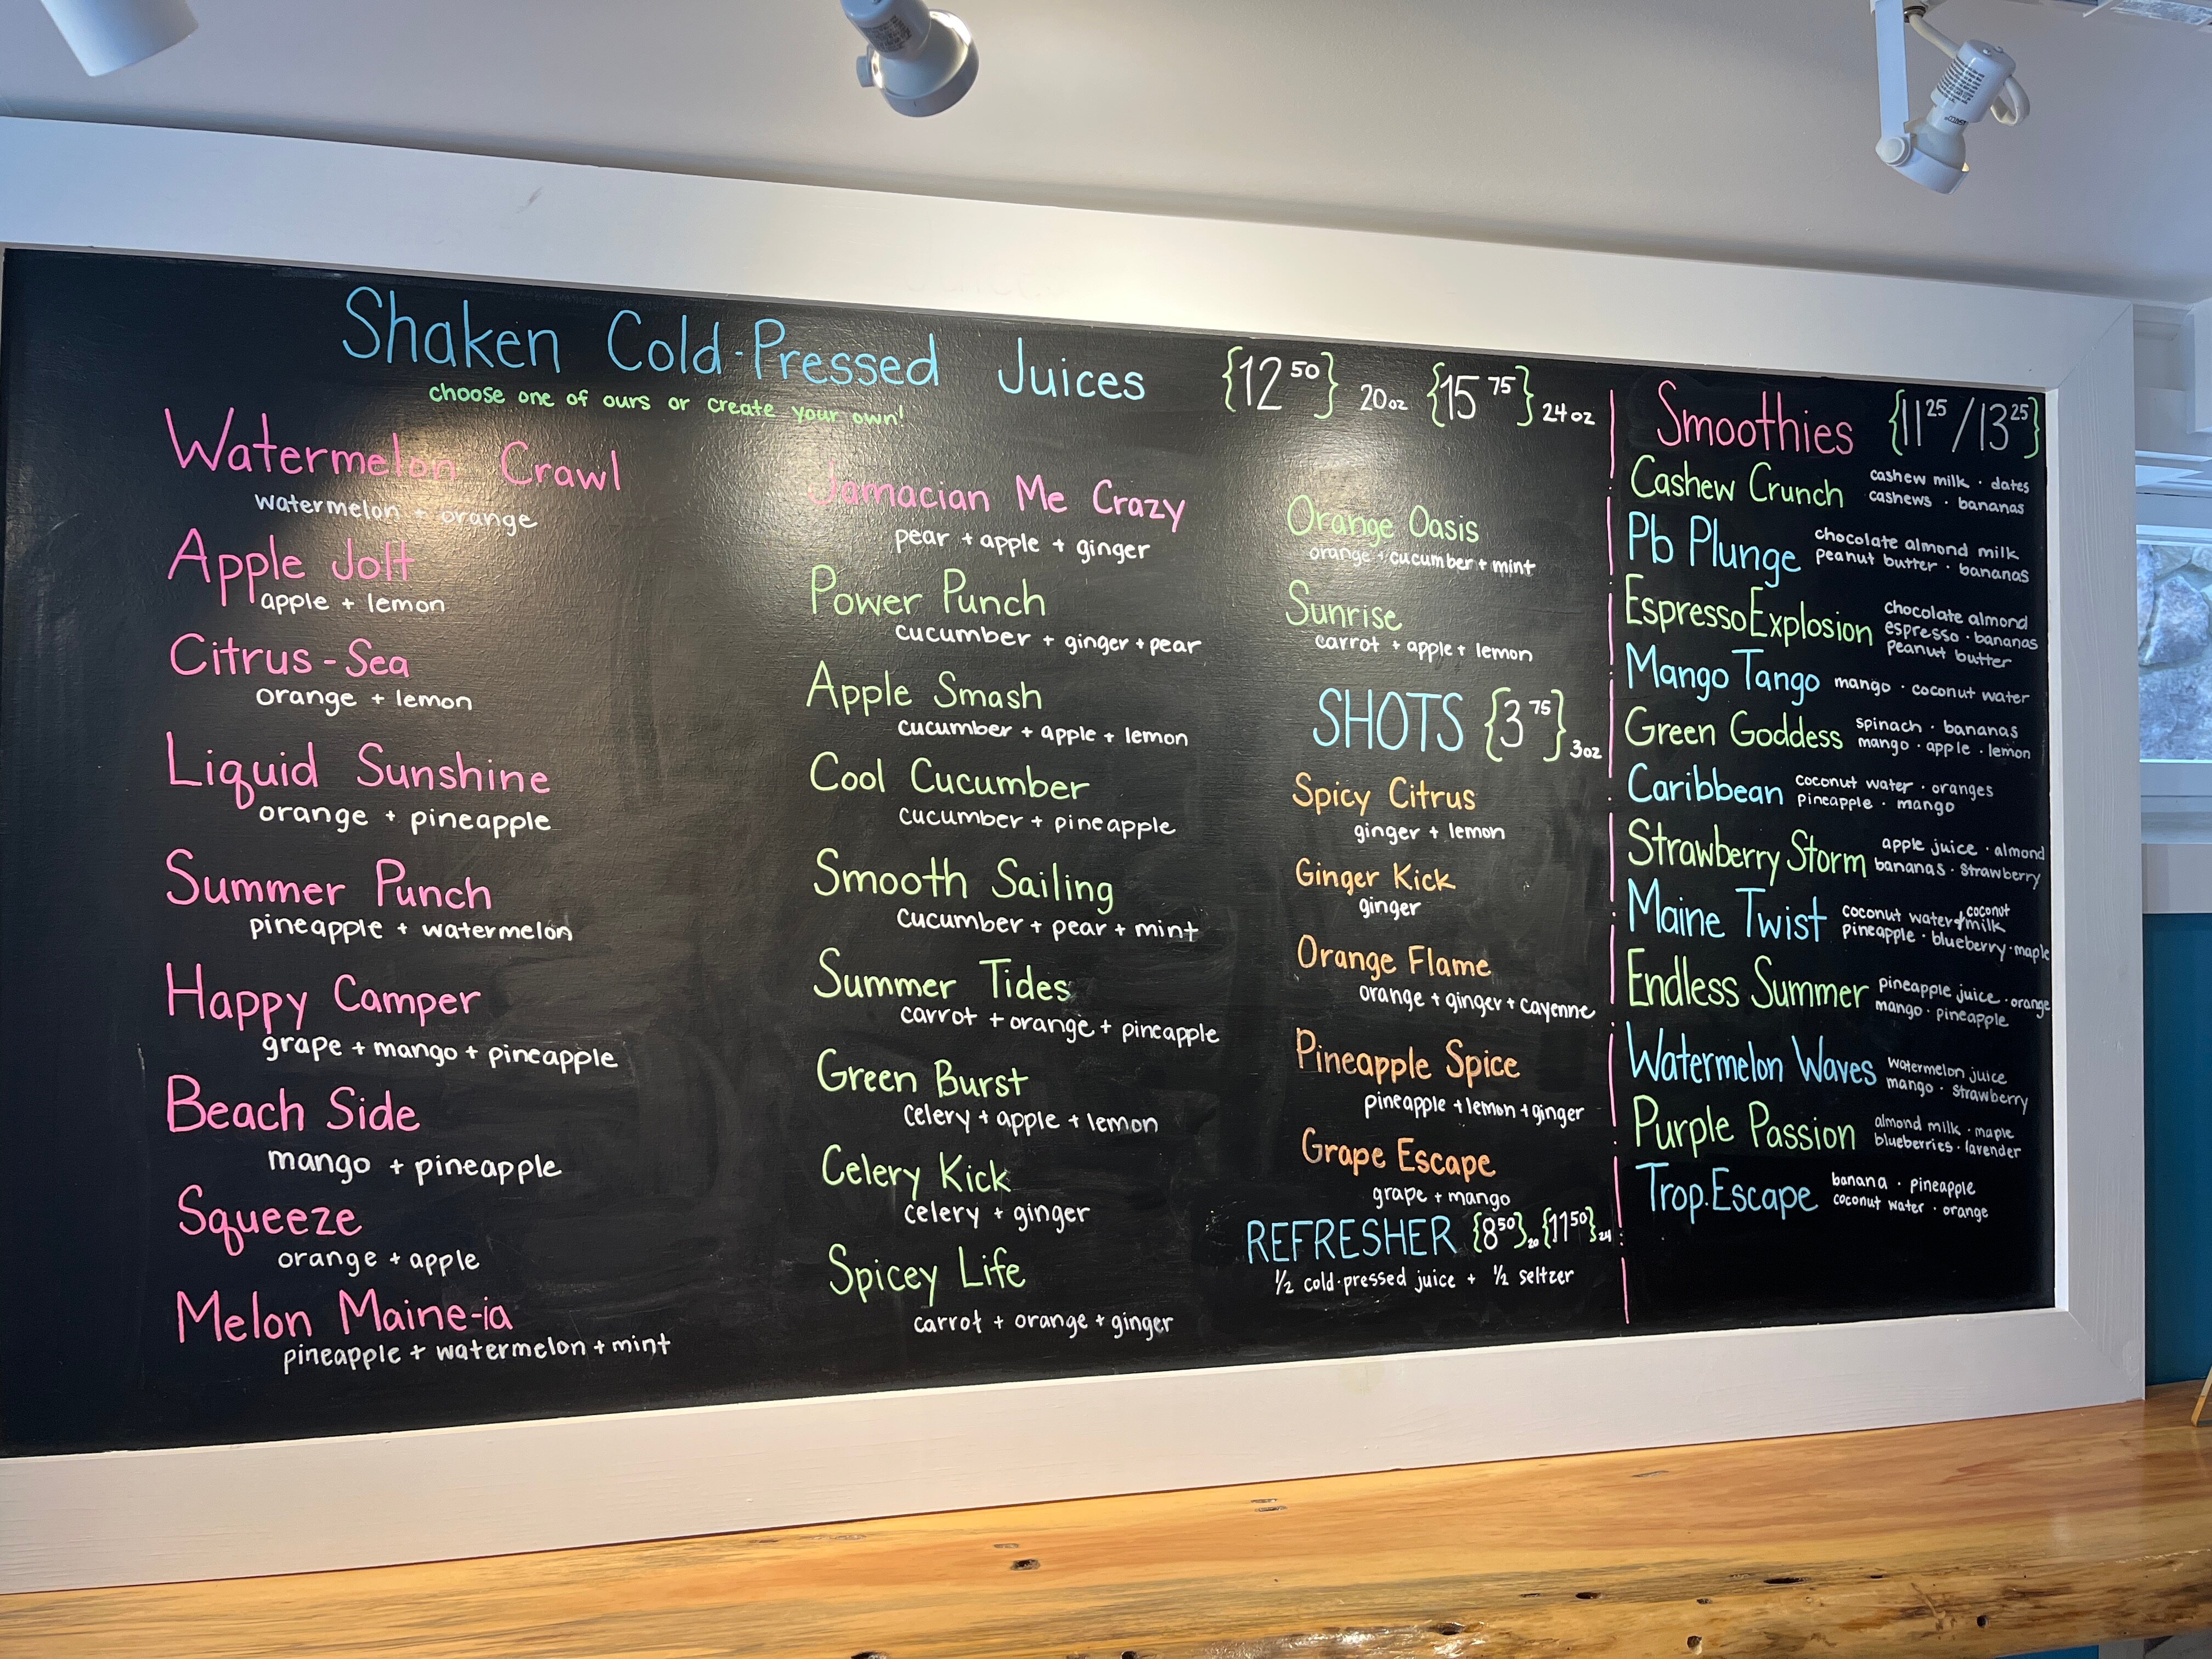 Shaken Cold-Pressed Juices {12 50} 20oz {15 75} 24oz
choose one of ours or create your own!
Watermelon Crawl
watermelon + orange
Apple Jolt
apple + lemon
Citrus-Sea
orange + lemon
Liquid Sunshine
orange + pineapple
Summer Punch
pineapple + watermelon
Happy Camper
grape + mango + pineapple
Beach Side
mango + pineapple
Squeeze
orange + apple
Melon Maine-ia
pineapple + watermelon + mint
Jamacian Me Crazy
pear + apple + ginger
Power Punch
cucumber + ginger + pear
Apple Smash
cucumber + apple + lemon
Cool Cucumber
cucumber + pineapple
Smooth Sailing
cucumber + pear + mint
Summer Tides
carrot + orange + pineapple
Green Burst
celery + apple + lemon
Celery Kick
celery + ginger
Spicey Life
carrot + orange + ginger
Orange Oasis
orange + cucumber + mint
Sunrise
carrot + apple + lemon
SHOTS {3 75} 3oz
Spicy Citrus
ginger + lemon
Ginger Kick
ginger
Orange Flame
orange + ginger + cayenne
Pineapple Spice
pineapple + lemon + ginger
Grape Escape
grape + mango
REFRESHER {8 50} 20 {11 50} 24
1/2 cold-pressed juice + 1/2 seltzer
Smoothies {11 25 / 13 25}
Cashew Crunch cashew milk · dates
cashews · bananas
Pb Plunge chocolate almond milk
peanut butter · bananas
Espresso Explosion chocolate almond
espresso · bananas
peanut butter
Mango Tango mango · coconut water
Green Goddess spinach · bananas
mango · apple · lemon
Caribbean coconut water · oranges
pineapple · mango
Strawberry Storm apple juice · almond
bananas · strawberry
Maine Twist coconut water & coconut milk
pineapple · blueberry · maple
Endless Summer pineapple juice · orange
mango · pineapple
Watermelon Waves watermelon juice
mango · strawberry
Purple Passion almond milk · maple
blueberries · lavender
Trop. Escape banana · pineapple
coconut water · orange